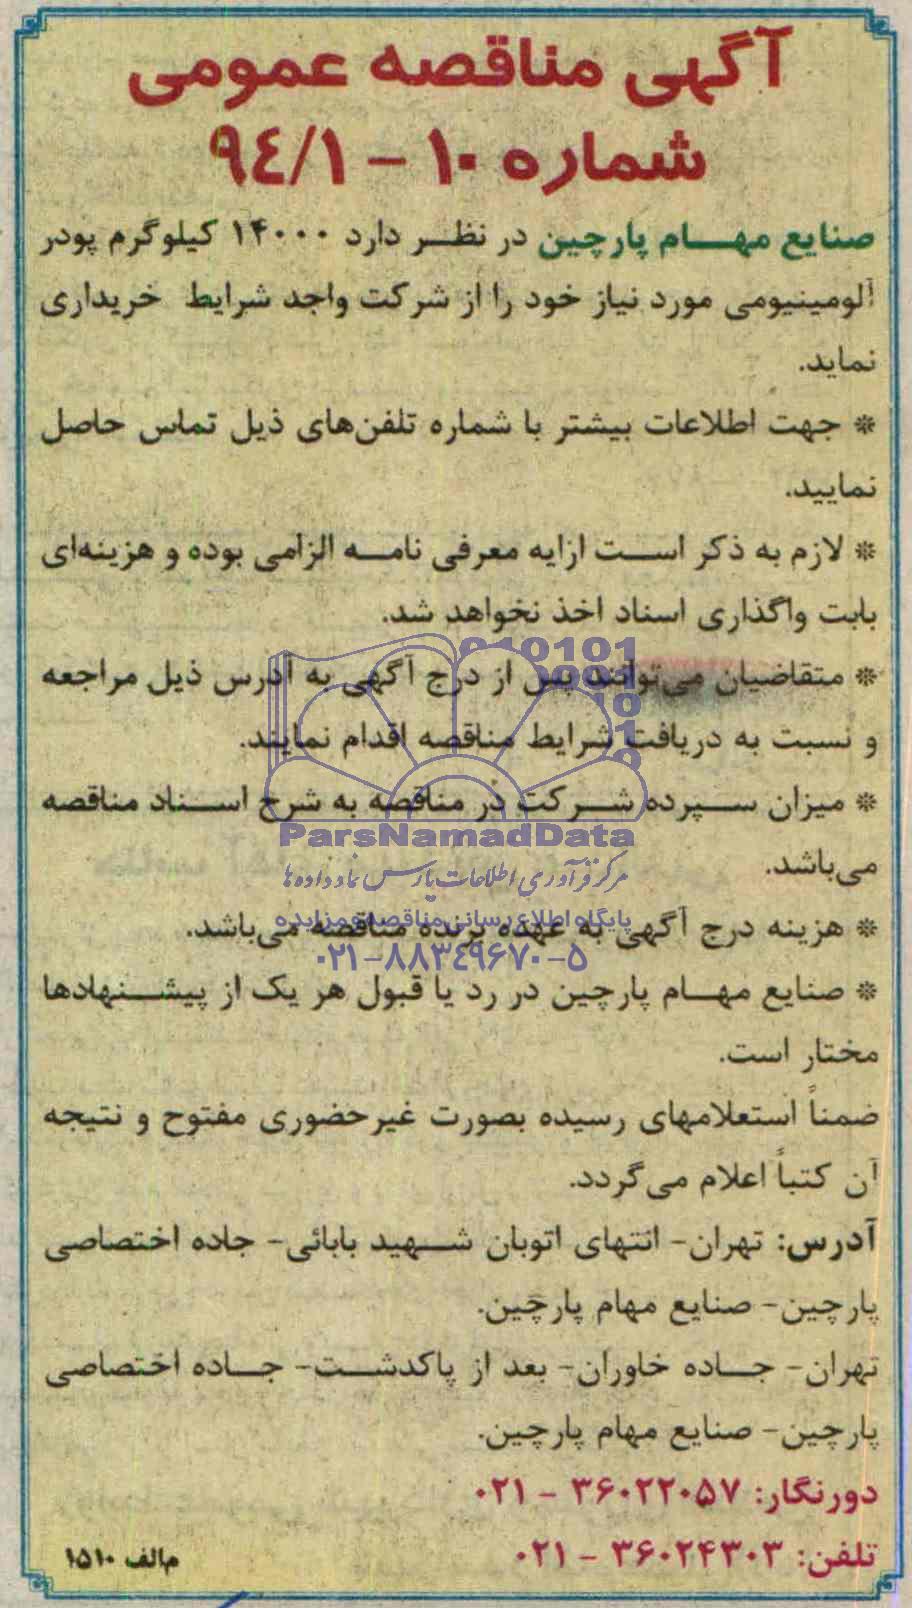 آگهی مناقصه عمومی
شماره ۱۰ - ۹۴/۱
صنایع مهام پارچین در نظر دارد ۱۴۰۰۰ کیلوگرم پودر
آلومینیومی مورد نیاز خود را از شرکت واجد شرایط خریداری
نماید.
* جهت اطلاعات بیشتر با شماره تلفن‌های ذیل تماس حاصل
نمایید.
* لازم به ذکر است ارایه معرفی نامه الزامی بوده و هزینه‌ای
بابت واگذاری اسناد اخذ نخواهد شد.
* متقاضیان می‌توانند پس از درج آگهی به آدرس ذیل مراجعه
و نسبت به دریافت شرایط مناقصه اقدام نمایند.
* میزان سپرده شرکت در مناقصه به شرح اسناد مناقصه
ParsNamadData
می‌باشد.
مرکز فرآوری اطلاعات پارس نماد داده ها
پایگاه اطلاع رسانی مناقصه و مزایده
* هزینه درج آگهی به عهده برنده مناقصه می‌باشد.
۰۲۱-۸۸۳۴۹۶۷۰-۵
* صنایع مهام پارچین در رد یا قبول هر یک از پیشنهادها
مختار است.
ضمناً استعلامهای رسیده بصورت غیرحضوری مفتوح و نتیجه
آن کتباً اعلام می‌گردد.
آدرس: تهران- انتهای اتوبان شهید بابائی- جاده اختصاصی
پارچین- صنایع مهام پارچین.
تهران- جاده خاوران- بعد از پاکدشت- جاده اختصاصی
پارچین- صنایع مهام پارچین.
دورنگار: ۳۶۰۲۲۰۵۷ - ۰۲۱
تلفن: ۳۶۰۲۴۳۰۳ - ۰۲۱
م‌الف ۱۵۱۰